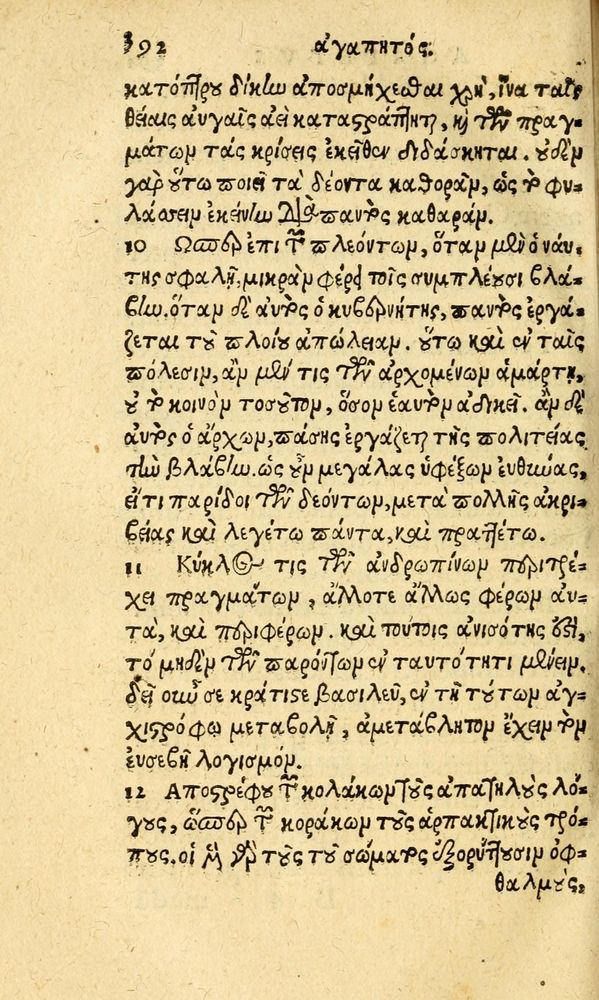 392 ἀγαπητός.
κατόπτρου δίκην ἀποσμήχεσθαι χρὴ, ἵνα ταῖς
θείαις αὐγαῖς ἀεὶ καταστράπτηται, καὶ τῶν πραγ-
μάτων τὰς κρίσεις ἐκεῖθεν διδάσκηται. οὐδὲν
γὰρ οὕτω ποιεῖ τὰ δέοντα καθορᾶν, ὡς τὸ φυ-
λάσσειν ἐκείνην διὰ παντὸς καθαράν.
10 Ὥσπερ ἐπὶ τῶν πλεόντων, ὅταν μὲν ὁ ναύ-
της σφαλῇ, μικρὰν φέρει τοῖς συμπλέουσι βλά-
βην. ὅταν δὲ αὐτὸς ὁ κυβερνήτης, παντὸς ἐργά-
ζεται τοῦ πλοίου ἀπώλειαν. οὕτω καὶ ἐν ταῖς
πόλεσιν, ἂν μέν τις τῶν ἀρχομένων ἁμάρτῃ,
οὐ τὸ κοινὸν τοσοῦτον, ὅσον ἑαυτὸν ἀδικεῖ. ἂν δὲ
αὐτὸς ὁ ἄρχων, πάσης ἐργάζεται τῆς πολιτείας
τὴν βλάβην. ὡς οὖν μεγάλας ὑφέξων εὐθύνας,
εἴ τι παρίδοι τῶν δεόντων, μετὰ πολλῆς ἀκρι-
βείας καὶ λεγέτω πάντα, καὶ πραττέτω.
11 Κύκλος τις τῶν ἀνδρωπίνων περιτρέ-
χει πραγμάτων, ἄλλοτε ἄλλως φέρων αὐ-
τὰ, καὶ περιφέρων. καὶ τούτοις ἀνισότης ἐστὶ,
τὸ μηδὲν τῶν παρόντων ἐν ταυτότητι μένειν.
δεῖ οὖν σε κράτιστε βασιλεῦ, ἐν τῇ τούτων ἀγ-
χιστρόφῳ μεταβολῇ, ἀμετάβλητον ἔχειν τὸν
εὐσεβῆ λογισμόν.
12 Ἀποστρέφου τῶν κολάκων τοὺς ἀπατηλοὺς λό-
γους, ὥσπερ τῶν κοράκων τοὺς ἁρπακτικοὺς τρό-
πους. οἱ μὲν γὰρ τοὺς τοῦ σώματος ἐξορύττουσιν ὀφ-
θαλμούς,